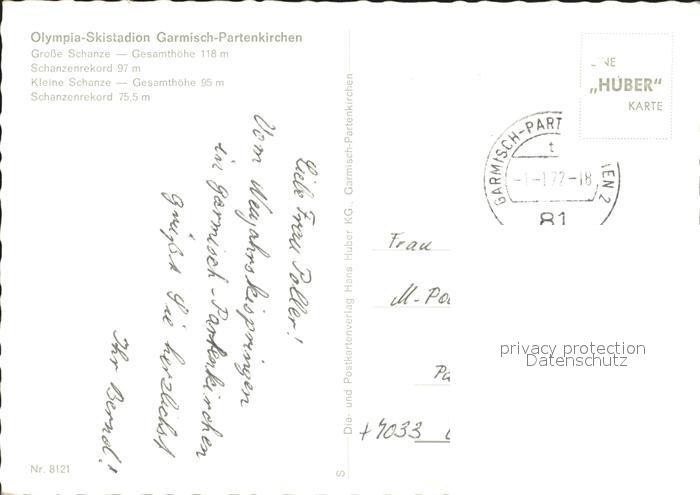 Olympia-Skistadion Garmisch-Partenkirchen
Große Schanze — Gesamthöhe 118 m
Schanzenrekord 97 m
Kleine Schanze — Gesamthöhe 95 m
Schanzenrekord 75,5 m
Liebe Frau Poller!
Vom Neujahrsskispringen
in Garmisch-Partenkirchen
grüßt Sie herzlichst
Ihr Bernd!
Nr. 8121
Dia- und Postkartenverlag Hans Huber KG., Garmisch-Partenkirchen
S
NE
„HUBER“
KARTE
GARMISCH-PART
EN 2
t
-1-1.72-18
81
Frau
M-Po
Pa
4033
privacy protection
Datenschutz